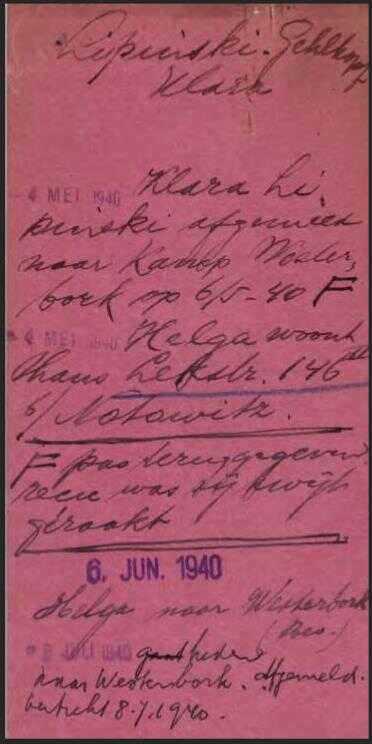 Lipinski-Gehlkopf
Klara
- 4 MEI 1940 Klara Li
pinski afgemeld
naar Kamp Wester,
bork op 6/5-40 F
- 4 MEI 1940 Helga woont
thans Lekstr. 146
b/ Notowitz.
F pas teruggegeven
reçu was zij kwijt
geraakt
6. JUN. 1940
Helga naar Westerbork
JULI 1940 gaat heden
naar Westerbork. Afgemeld.
bericht 8.7.1940.